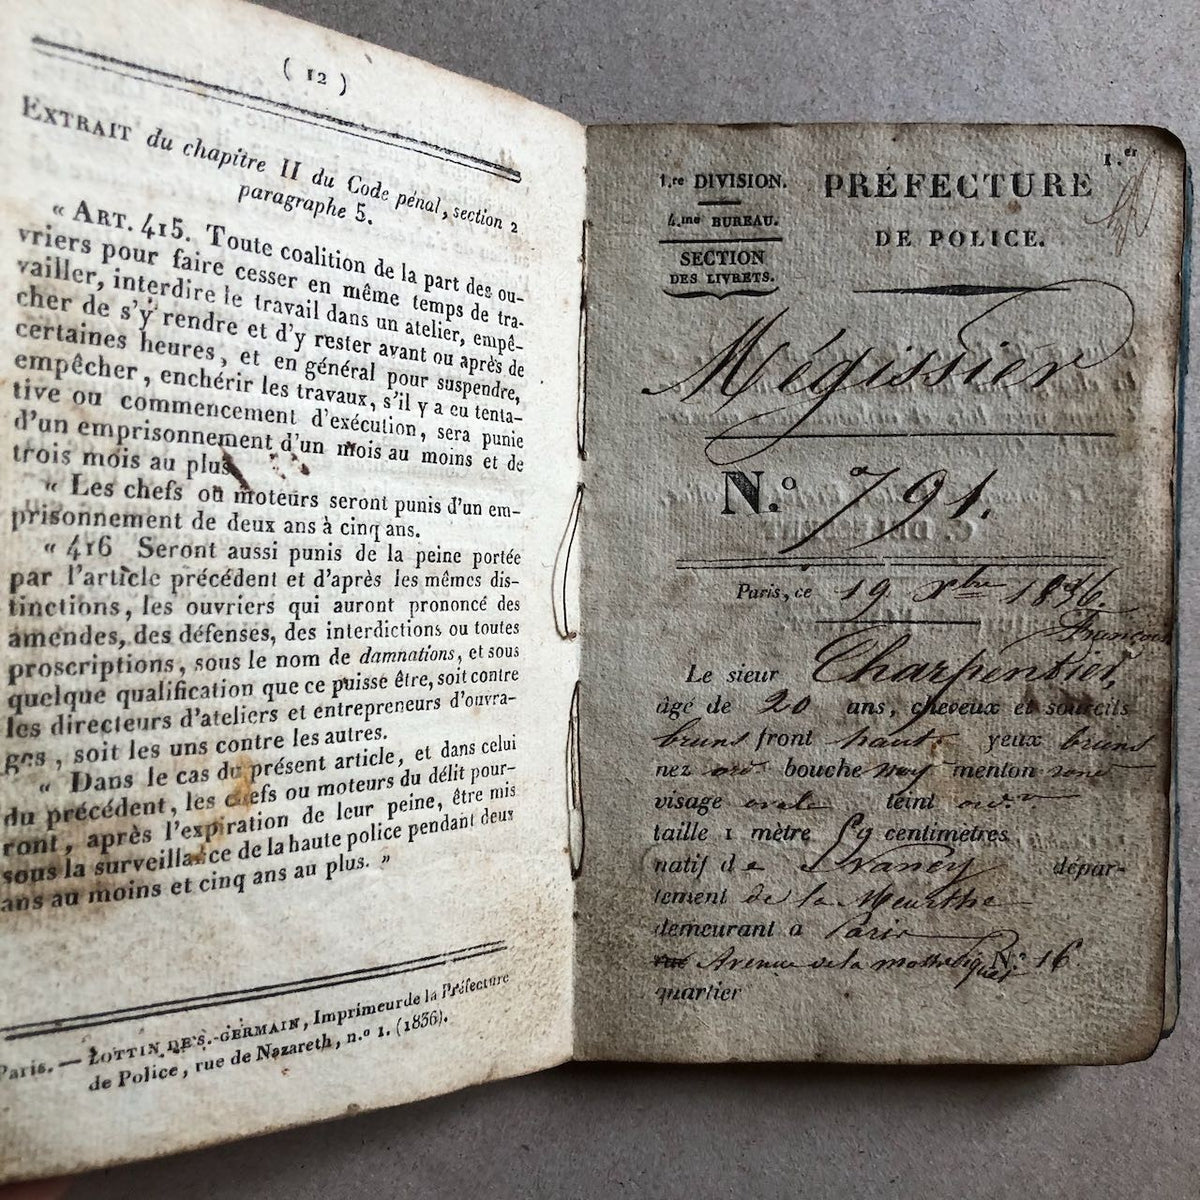 ( 12 )
EXTRAIT du chapitre II du Code pénal, section 2
paragraphe 5.
« ART. 415. Toute coalition de la part des ou-
vriers pour faire cesser en même temps de tra-
vailler, interdire le travail dans un atelier, empê-
cher de s'y rendre et d'y rester avant ou après de
certaines heures, et en général pour suspendre,
empêcher, enchérir les travaux, s'il y a eu tenta-
tive ou commencement d'exécution, sera punie
d'un emprisonnement d'un mois au moins et de
trois mois au plus.
« Les chefs ou moteurs seront punis d'un em-
prisonnement de deux ans à cinq ans.
« 416 Seront aussi punis de la peine portée
par l'article précédent et d'après les mêmes dis-
tinctions, les ouvriers qui auront prononcé des
amendes, des défenses, des interdictions ou toutes
proscriptions, sous le nom de damnations, et sous
quelque qualification que ce puisse être, soit contre
les directeurs d'ateliers et entrepreneurs d'ouvra-
ges, soit les uns contre les autres.
« Dans le cas du présent article, et dans celui
du précédent, les chefs ou moteurs du délit pour-
ront, après l'expiration de leur peine, être mis
sous la surveillance de la haute police pendant deux
ans au moins et cinq ans au plus. »
Paris. — LOTTIN DE S.-GERMAIN, Imprimeur de la Préfecture
de Police, rue de Nazareth, n.º 1. (1836).
1.er
1.re DIVISION.
4.me BUREAU.
SECTION
DES LIVRETS.
PRÉFECTURE
DE POLICE.
Mégissier
N.º 791.
Paris, ce 19 Xbre 1836.
François
Le sieur Charpentier,
âgé de 20 ans, cheveux et sourcils
bruns front haut yeux bruns
nez ord. bouche moy menton rond
visage ovale teint ord.
taille 1 mètre 59 centimètres
natif de Nancy dépar-
tement de la Meurthe
demeurant à Paris
rue Avenue de la mothe piquet N.º 16
quartier